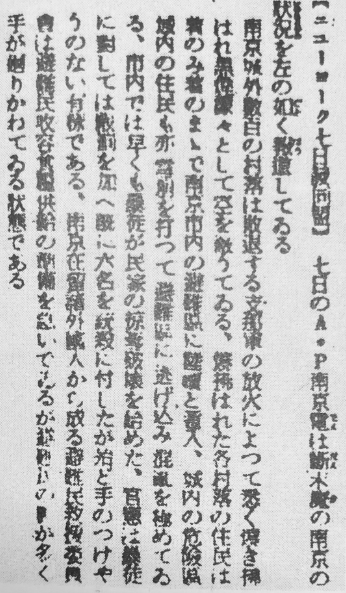 【ニューヨーク七日発同盟】　七日のA・P南京電は断末魔の南京の
状況を左の如く報道してゐる
南京城外数百の村落は敗退する支那軍の放火によつて悉く焼き払
はれ黒煙濛々として空を蔽うてゐる、焼払はれた各村落の住民は
着のみ着のまゝで南京市内の避難区に陸続と潜入、城内の危険区
域内の住民も亦雪崩を打つて避難区に逃げ込み混乱を極めてゐ
る、市内では早くも暴徒が民家の掠奪破壊を始めた、官憲は暴徒
に対しては厳罰を加へ既に六名を銃殺に付したが殆と手のつけや
うのない有様である、南京在留諸外国人から成る避難民救援委員
会は避難民収容食糧供給の準備を急いでゐるが避難民の が多く
手が廻りかねてゐる状態である